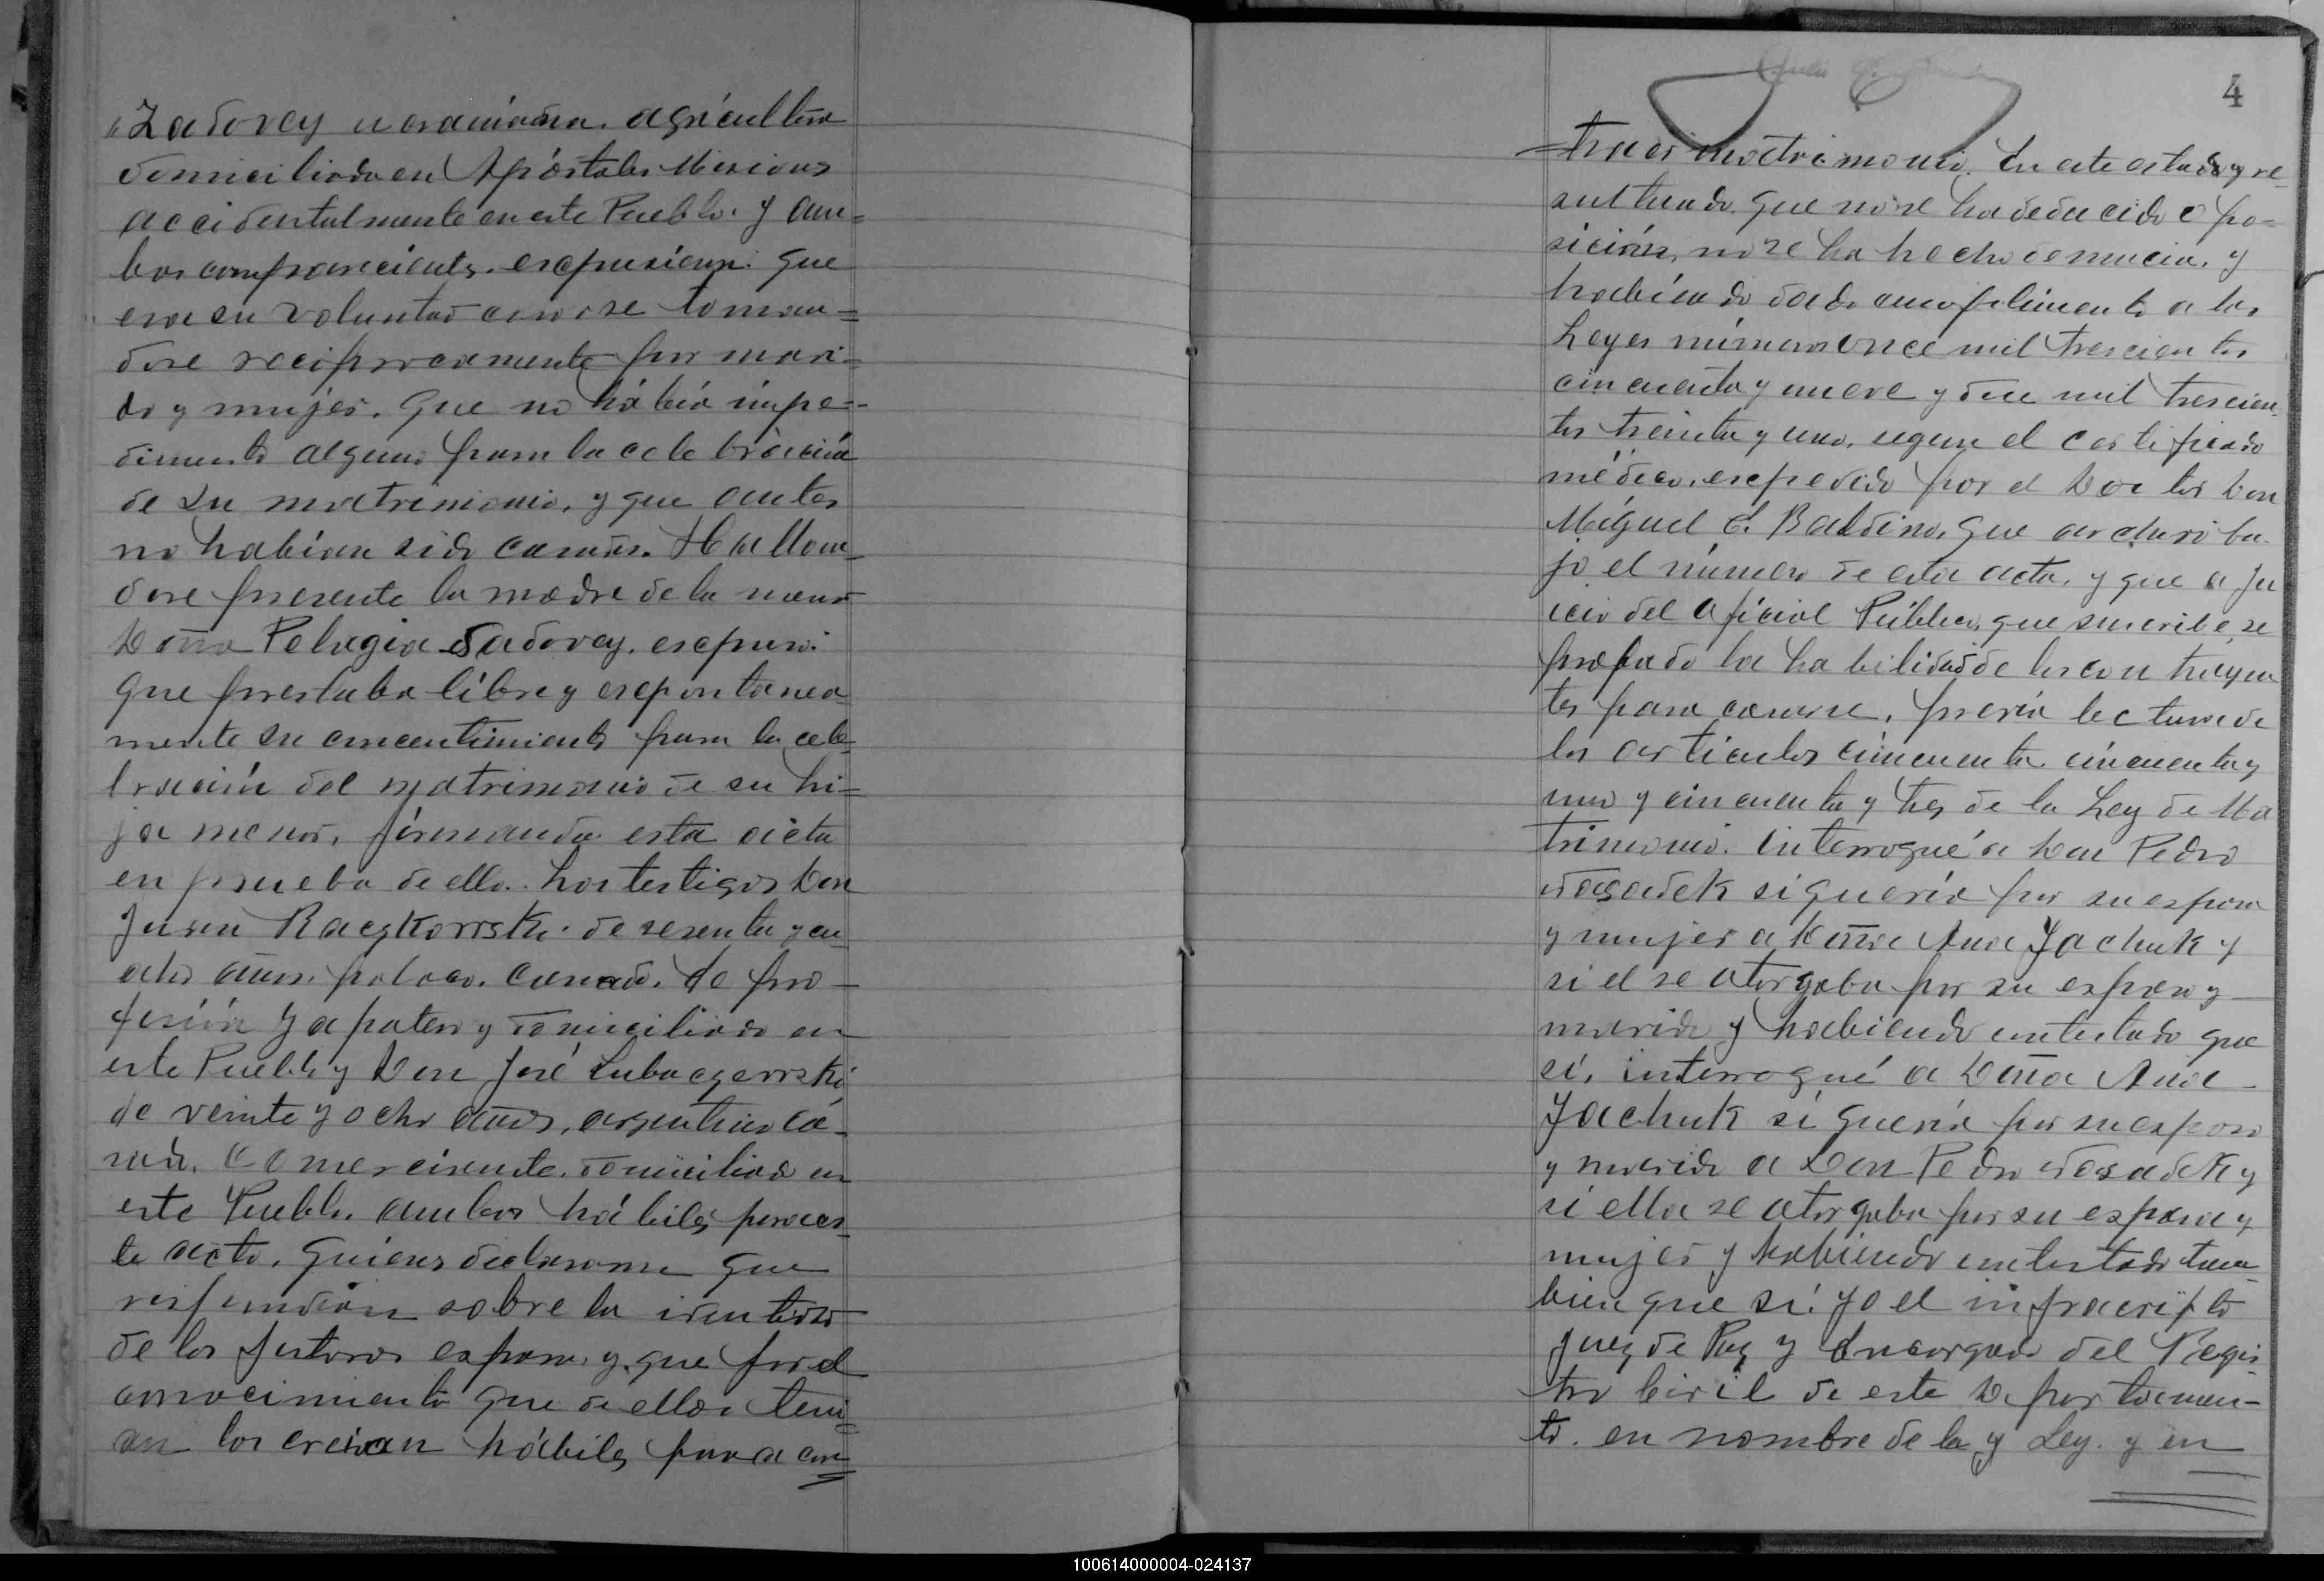 "Zadovey ucraniana. agricultora
domiciliada en Apóstoles Misiones
accidentalmente en este Pueblo. y am=
bos comparecientes. expusieron: que
era su voluntad casarse toman=
dose reciprocamente por mari=
do y mujer. Que no había impe=
dimento alguno para la celebración
de su matrimonio, y que antes
no habían sido casados. Hallan_
dose presente la madre de la menor
Doña Pelagia Sadovey. expuso:
Que prestaba libre y espontanea_
mente su concentimiento para la cele_
bración del matrimonio de su hi=
ja menor, firmando esta acta
en prueba de ello. Los testigos Don
Juan Raczkowski. de sesenta y cu
atro años. polaco. casado. de pro_
fesión zapatero y domiciliado en
este Pueblo y Don José Lubaczewski
de veinte y ocho años, argentino ca_
sado. comerciante. domiciliado en
este Pueblo. ambos hábiles para es_
te acto. Quienes declararon que
respondian sobre la identidad
de los futuros esposos, y que por el
conocimiento que de ellos teni=
an los creian hábiles para con=
4
=traer matrimonio. En este estado y re_
sultando que no se ha deducido opo=
sición, no se ha hecho denuncia. y
habiendo dado cumplimento a las
Leyes números once mil trescientos
cincuenta y nueve y doce mil trescien_
tos treinta y uno, segun el certificado
médico. expedido por el Doctor Don
Miguel C. Baldino. que archivo ba_
jo el número de esta acta. y que a ju
icio del Oficial Público, que suscribe, se
probado la habilidad de los contrayen
tes para casarse, previa lectura de
los articulos cincuenta. cincuenta y
uno y cincuenta y tres de la Ley de Ma
trimonio. Interrogué a Don Pedro
si quería por su esposa
y mujer a Doña Ana Jachuk y
si el se otorgaba por su esposo y
marido y habiendo contestado que
sí, interrogué a Doña Ana
Jachuk si quería por su esposo
y marido a Don Pedro y
si ella se otorgaba por su esposa y
mujer y habiendo contestado tam_
bien que sí: yo el infrascripto
Juez de Paz y Encargado del Regis
tro Civil de este Departamen_
to. en nombre de la y Ley. y en
100614000004-024137